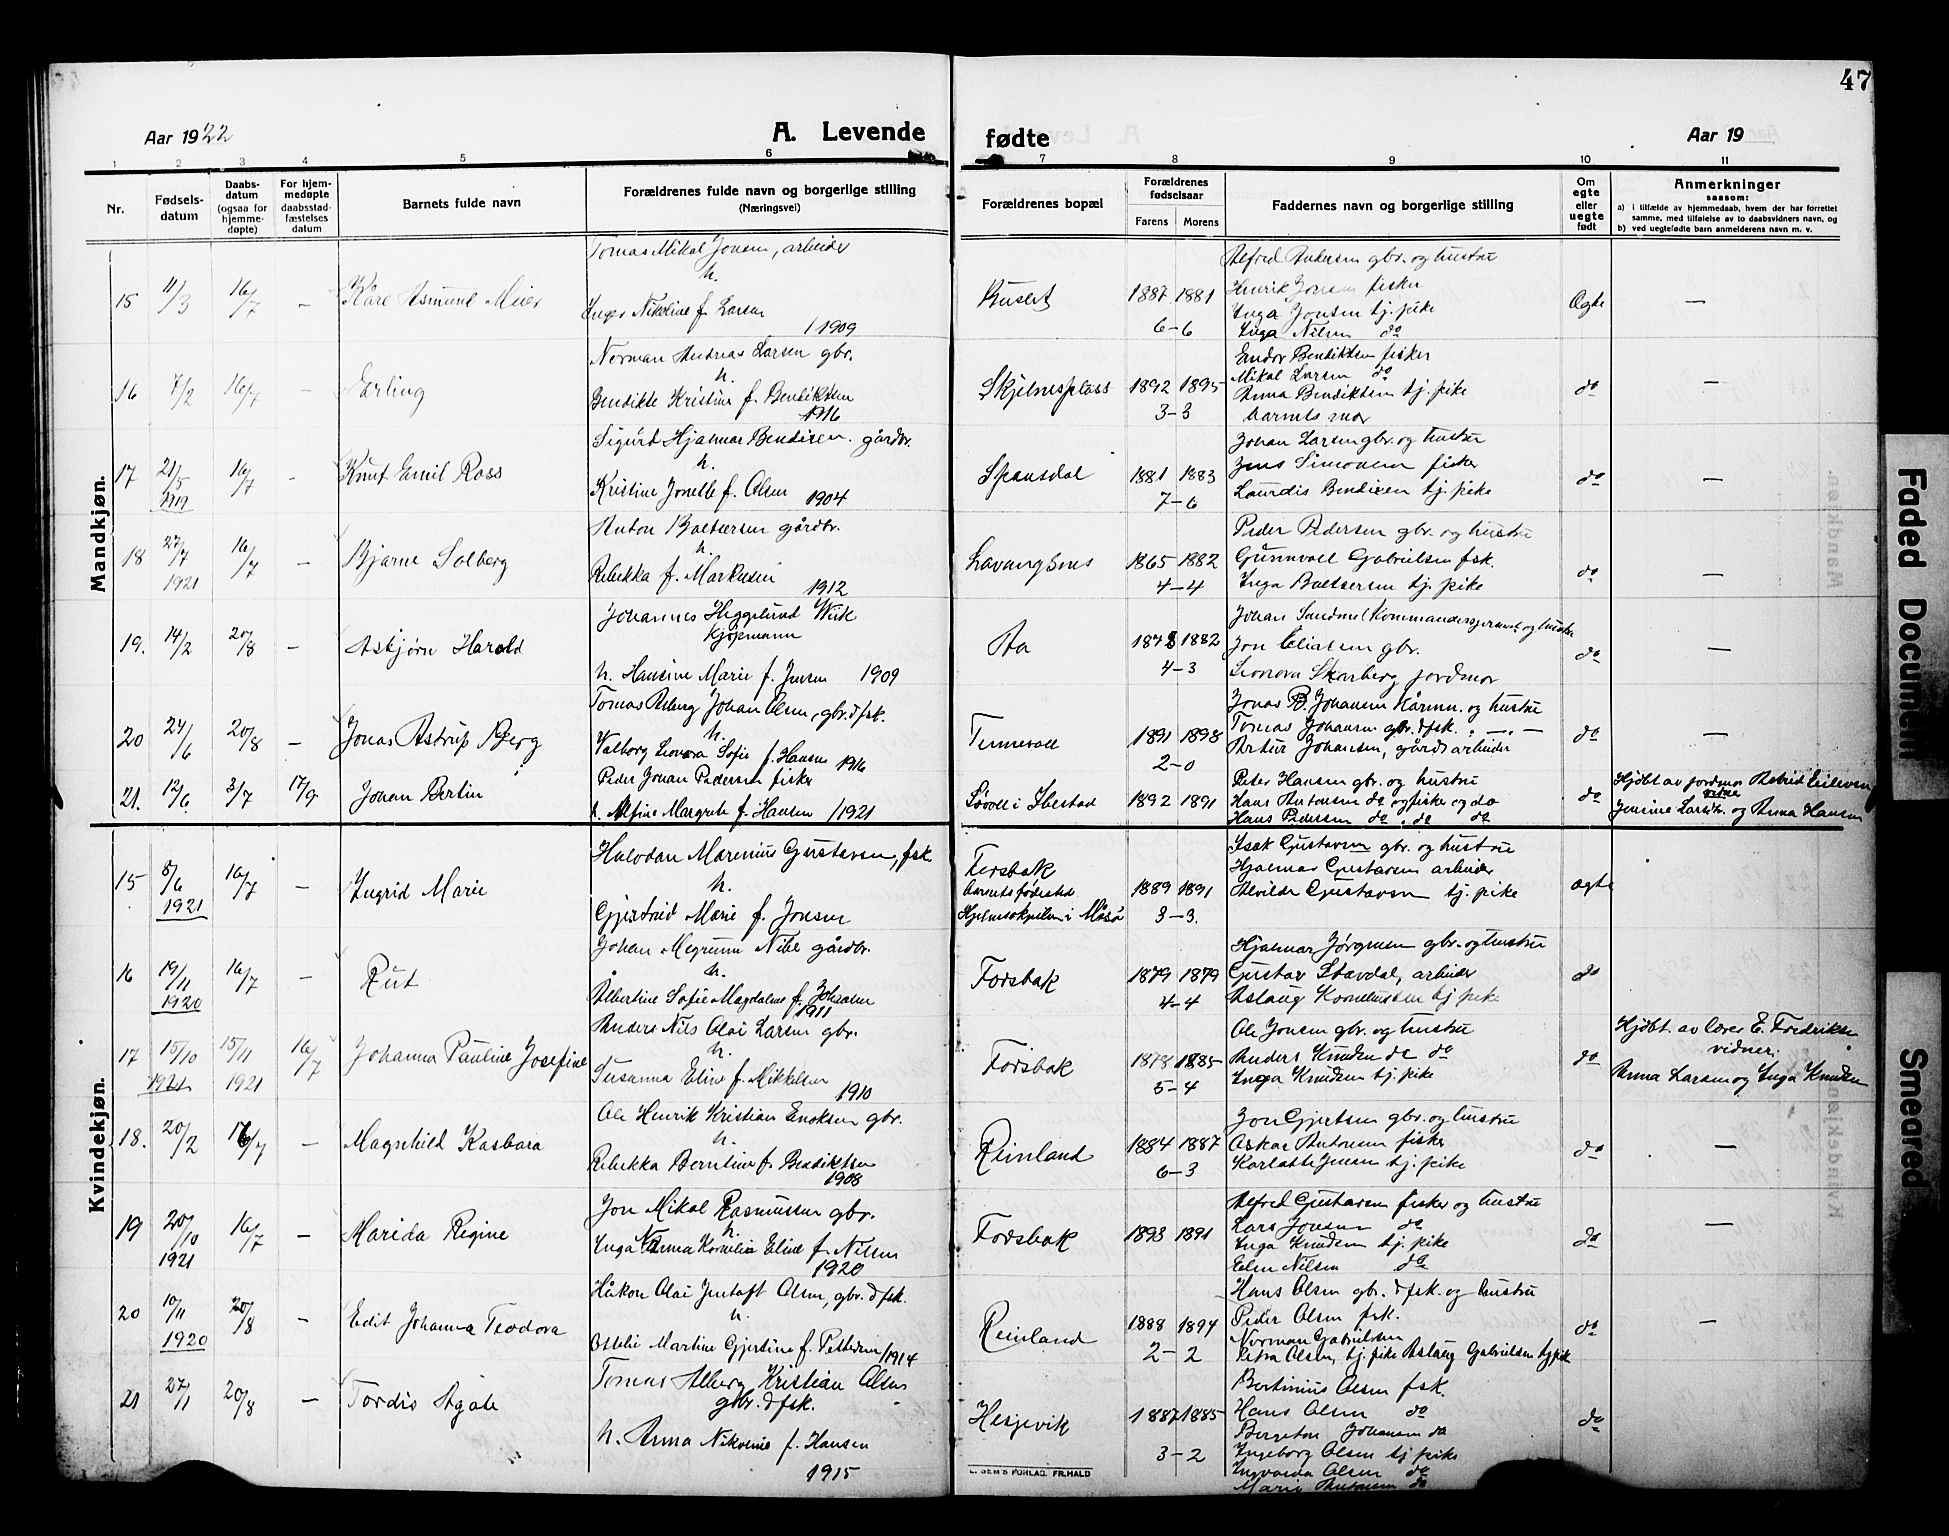 47
Aar 1922
A. Levende
fødte
Aar 19
1 2 3 4 5 6 7 8 9 10 11
Nr.
Fødsels-
datum
Daabs-
datum
(ogsaa for
hjemme-
døpte)
For hjem-
medøpte
daabsstad-
fæstelses
datum
Barnets fulde navn
Forældrenes fulde navn og borgerlige stilling
(Næringsvei)
Forældrenes bopæl
Forældrenes
fødselsaar
Farens Morens
Faddernes navn og borgerlige stilling
Om
egte
eller
uegte
født
Anmerkninger
saasom:
a) i tilfælde av hjemmedaab, hvem der har forrettet
samme, med tilføielse av to daabsvidners navn, og
b) ved uegtefødte barn anmelderens navn m. v.
Mandkjøn.
15 11/3 16/7 — Kåre Asmund Meier
Tomas Mikal Jonsen, arbeider
h.
Inger Nikoline f. Larsen
1909
1887 1881
6-6
Alfred Andersen gbr. og hustru
Henrik Jonsen fisker
Inga Jonsen tj. pike
Inga Nilsen do
Egte
—
16 7/2 16/7 — Erling
Norman Andreas Larsen gbr.
h.
Bendikte Kristine f. Bendiktsen
1916
Skjelnesplass
1892 1895
3-3
Endor Bendiktsen fisker
Mikal Larsen do
Anna Bendiktsen tj. pike
barnets mor
do
—
17 21/5 1919 16/7 - Knut Emil Ross
Sigurd Hjalmar Bendixen gårdbr.
h.
Kristine Jonette f. Olsen 1904
Spansdal
1881 1883
7-6
Johan Larsen gbr. og hustru
Jens Simonsen fisker
Laurdis Bendixen tj. pike
do
—
18 27/7 1921 16/7 — Bjarne Solberg
Anton Baltsersen gårdbr.
h.
Rebekka f. Markusen
1912
Lavangsnes
1865 1882
4-4
Peder Pedersen gbr. og hustru
Gunnvall Gabrielsen fsk.
Inga Baltsersen tj. pike
do
—
19. 14/2 20/8 — Asbjørn Harald
Johannes Heggelund Wiik
kjøpmann
h. Hansine Marie f. Jensen 1909
Aa
1878 1882
4-3
Jon Eliassen gbr.
Leonora Skovberg jordmor
do
—
20 24/6 20/8 — Jonas Astrup Berg
Tomas Åberg Johan Olsen, gbr. & fsk.
h.
Valborg Leonora Sofie f. Hansen 1916
Tennevoll
1891 1898
2-0
Jonas B. Johansen Kårmn. og hustru
Tomas Johansen gbr. & fsk.
Artur Johansen, gårdsarbeider
do
—
21. 12/6 3/7 17/9 Johan Bertin
Peder Johan Pedersen fisker
h. Alfine Margrete f. Hansen 1921
Løvoll i Ibestad
1892 1891
Peter Hansen gbr. og hustru
Hans Antonsen do og fisker og do
Hans Pedersen do . do do
do
Hjdbt av jordmor Astrid Eilevsen
vidne
Jensine Larsen og Anna Hansen
Kvindekjøn.
15 8/6 1921 16/7 — Ingrid Marie
Halvdan Marenius Gustavsen, fsk
h.
Gjertrud Marie f. Jonsen
Forsbak
barnets fødested
1889 1891
3-3.
Isak Gustavsen gbr. og hustru
Hjalmar Gustavsen arbeider
Alvilde Gustavsen tj. pike
egte
16 19/11 1920 16/7 — Rut
h.
Albertine Sofie Magdalene f. Johansen
1911
Forsbak
1879 1879
4-4
Hjalmar Jørgensen gbr. og hustru
Gustav Stavdal, arbeider
Aslaug Korneliussen tj pike
do
17 15/10 1921 15/11 1921 16/7 Johanna Pauline Josefine
Anders Nils Olai Larsen gbr.
h.
Susanna Eline f. Mikkelsen
1910
Forsbak
1878 1885
5-4
Ole Jonsen gbr. og hustru
Anders Knudsen do do
Inga Knudsen tj. pike
do
Hjdbt. av lærer E. Fredriksen
vidner:
Anna Larsen og Inga Knudsen
18. 20/2 16/7 — Magnhild Kasbara
Ole Henrik Kristian Enoksen gbr.
h.
Rebekka Berntine f. Bendiktsen
1908
Reinland
1884 1887
6-3
Jon Gjertsen gbr. og hustru
Oskar Antonsen fisker
Karlotte Jensen tj. pike
do
—
19 20/10 1921 16/7 — Marida Regine
Jon Mikal Rasmussen gbr.
h.
Inga Anna Kornelia Eline f. Nilsen
1920
Forsbak
1893 1891
Alfred Gustavsen fisker og hustru
Lars Jonsen do
Inga Knudsen tj. pike
Elen Nilsen do
do
—
20 10/11 1920 20/8 — Edit Johanna Teodora
Håkon Olai Jentoft Olsen, gbr. & fsk.
h.
Ottelie Martine Gjertine f. Pettersen 1914
Reinland
1888 1894
2-2
Hans Olsen gbr. & fsk. og hustru
Peder Olsen fsk.
Norman Gabrielsen
Petra Olsen, tj. pike Aslaug Gabrielsen tj pik
do
—
21 27/1 20/8 — Tordis Agate
Tomas Alberg Kristian Olsen
gbr. & fsk.
h. Anna Nikoline f. Hansen
1915
Hesjevik
1887 1885
3-2
Bertinius Olsen fsk.
Hans Olsen do
Bergeton Johansen do
Ingeborg Olsen tj pike
Ingvarda Olsen do
Marie Antonsen do
do
E. SEM'S FORLAG, FR.HALD
Faded Document
Smeared